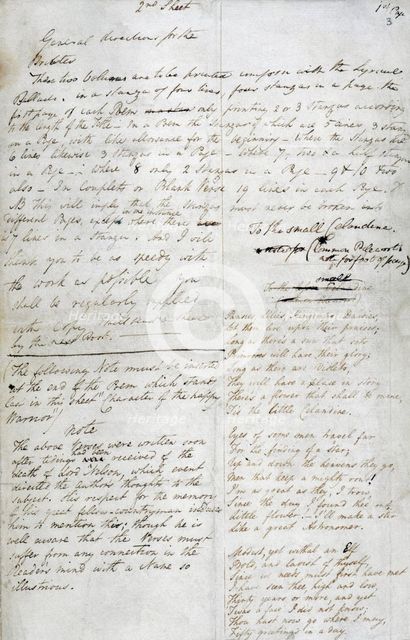 2nd Sheet
1st Page
3
General directions for the
Printer
These two Volumes are to be printed uniform with the Lyrical
Ballads. in a stanza of four lines, four stanzas in a page the
first page of each Poem only printing 2 or 3 Stanzas according
to the length of the title — in a Poem the Stanzas of which are 5 lines 3 stanzas
in a page with like allowance for the beginning — Where the Stanzas are
6 lines likewise 3 Stanzas in a Page — Where 7, two &
in a Page — Where 8 only 2 Stanzas in a Page — 9 & 10 two
also — In Couplets or Blank Verse 19 lines in each Page.
NB This will imply that the Stanzas must never be broken into
different Pages, except where there
7 lines in a Stanza. And I will
you to be as speedy with
the work as possible. You
shall be regularly supplied
with Copy
by the next Post.
The following Note must be inserted
at the end of the Poem which stands
in this sheet "Character of the happy
Warrior"
Note
The above Verses were written soon
after tidings had been received of the
death of Lord Nelson, which event
directed the Author's thoughts to the
subject. His respect for the memory
of his great fellow-countryman induces
him to mention this; though he is
well aware that the Verses must
suffer from any connection in the
Readers mind with a Name so
illustrious.
To the small Celandine.
(Common Pilewort
Pansies, Lilies, Kingcups, Daisies,
Let them live upon their praises;
Long as there's a sun that sets
Primroses will have their glory;
Long as there are Violets,
They will have a place in story
There's a flower that shall be mine,
'Tis the little Celandine.
Eyes of some men travel far
For the finding of a star;
Up and down the heavens they go,
Men that keep a mighty rout!
I'm as great as they, I trow,
Since the day I found thee out,
Little flower! — I'll make a stir
Like a great Astronomer.
Modest, yet withal an Elf
Bold, and lavish of thyself,
Since we needs must first have met
I have seen thee, high and low,
Thirty years or more, and yet
'Twas a face I did not know;
Thou hast now, go where I may,
Fifty greetings in a day.
Heritage
Heritage
Heritage